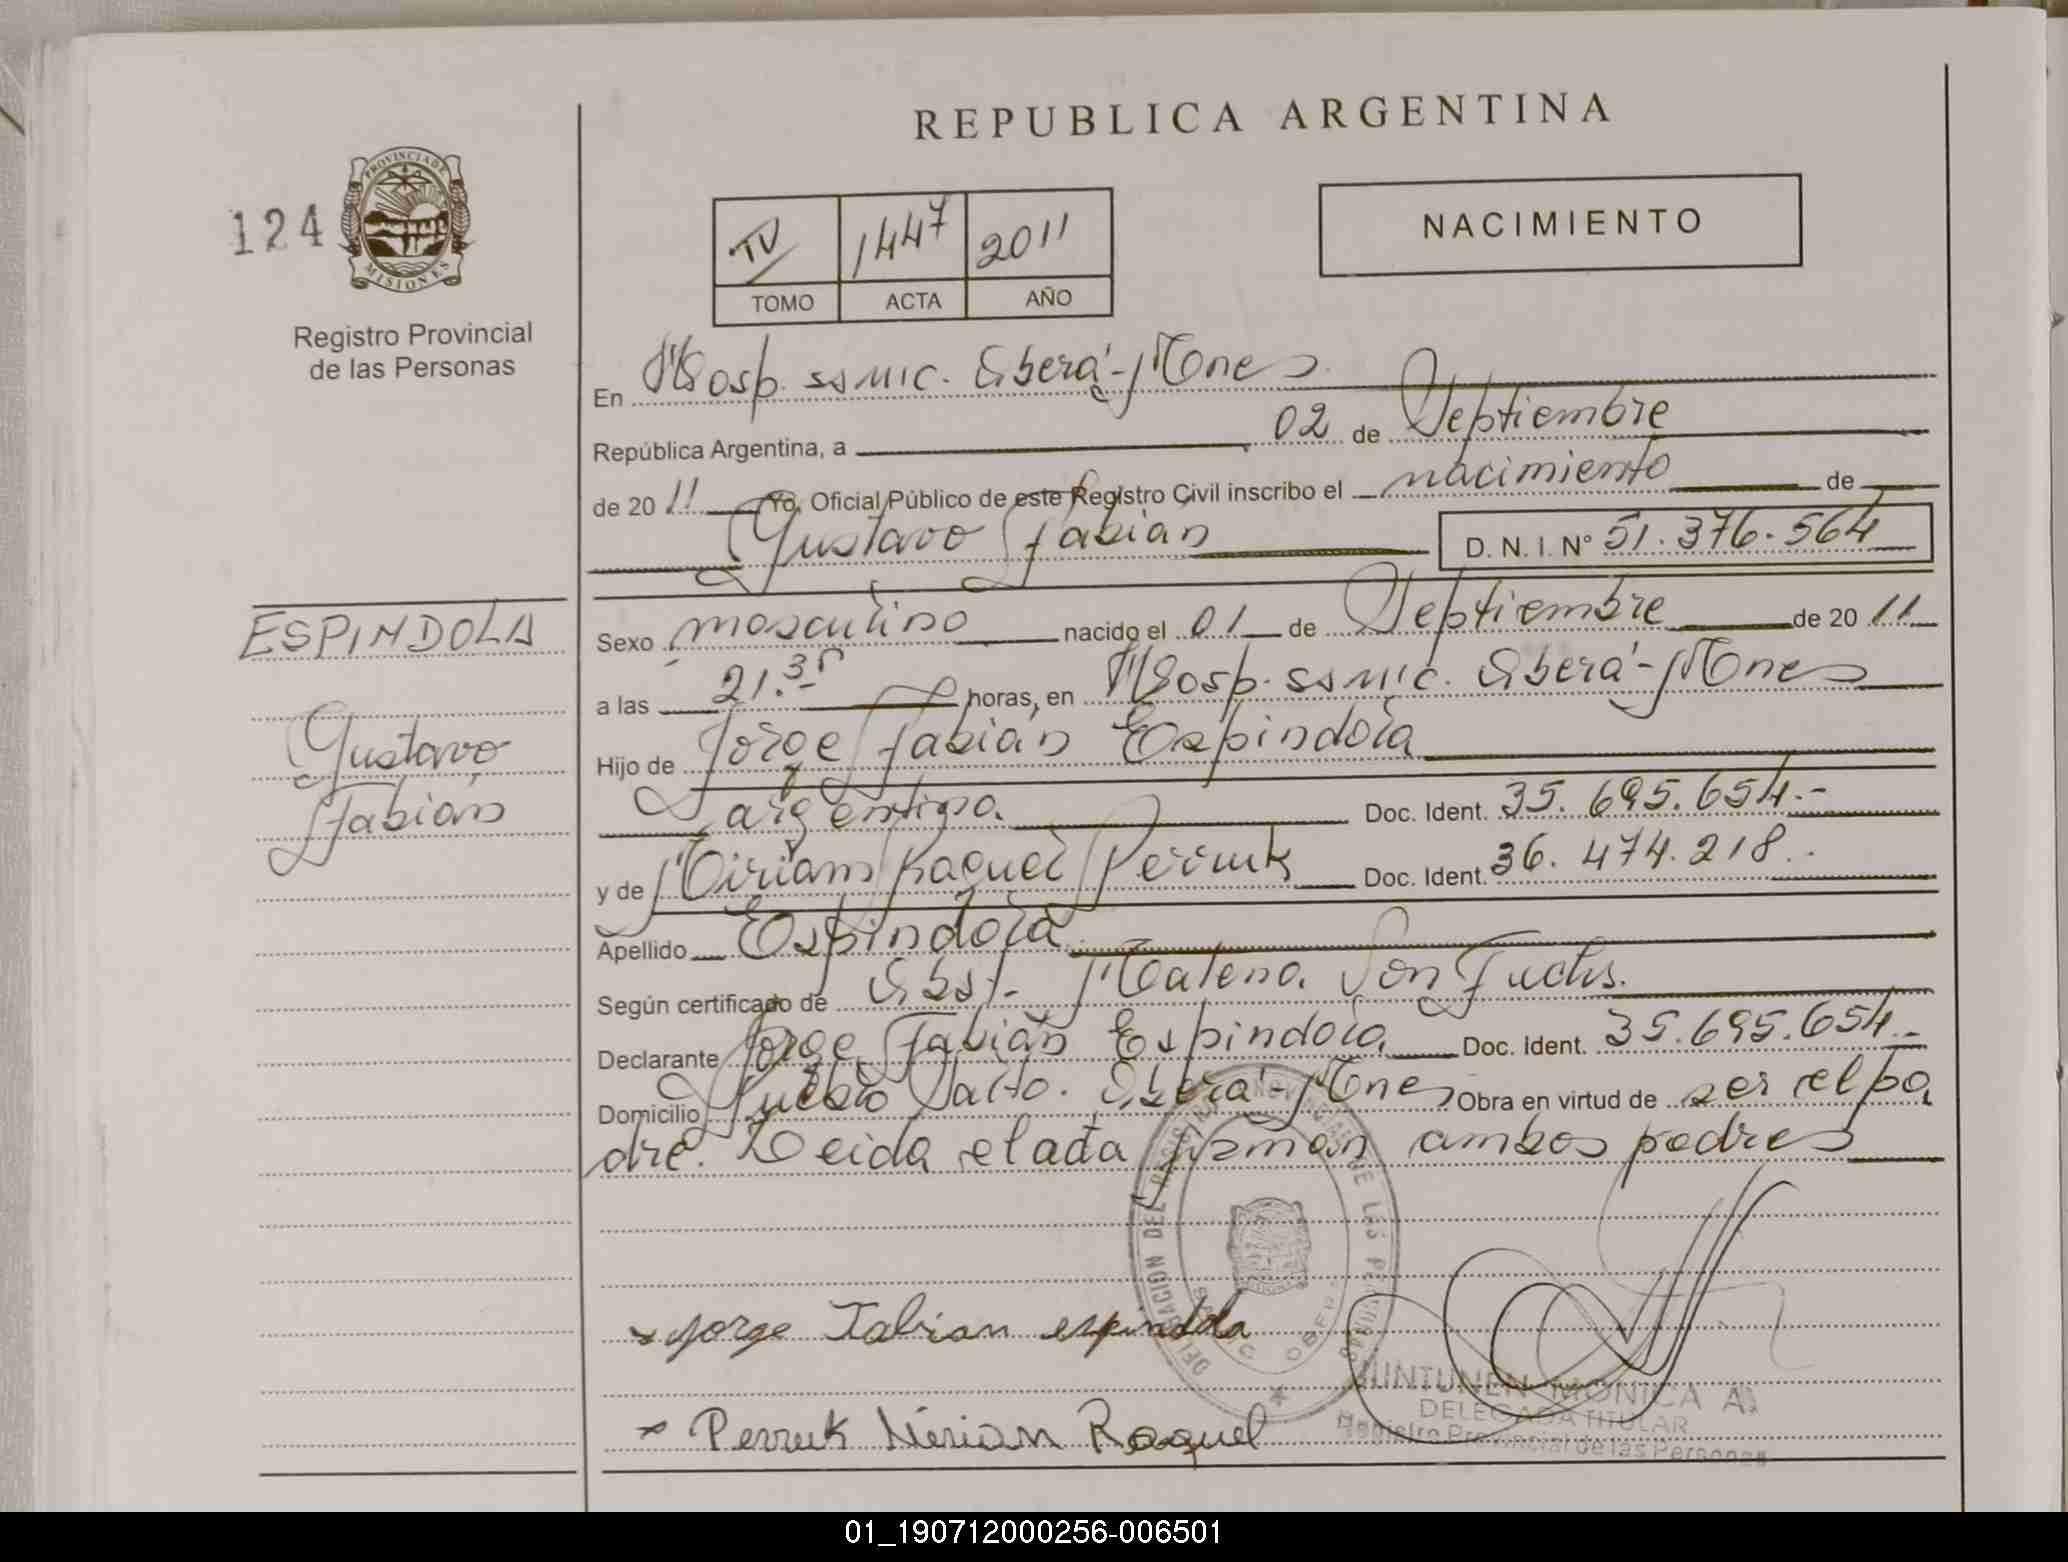 REPUBLICA ARGENTINA
124
PROVINCIA DE
MISIONES
Registro Provincial
de las Personas
TV 1447 2011
TOMO ACTA AÑO
NACIMIENTO
En Hosp. ssmic. Oberá-Mones
República Argentina, a 02 de Septiembre
de 2011 Yo, Oficial Público de este Registro Civil inscribo el nacimiento de
Gustavo Fabián D. N. I. Nº 51.376.564
ESPINDOLA
Gustavo
Fabián
Sexo masculino nacido el 01 de Septiembre de 2011
a las 21.35 horas, en Hosp. ssmic. Oberá-Mones
Hijo de Jorge Fabián Espindola
argentina Doc. Ident. 35.695.654.-
y de Miriam Raquel Perruk Doc. Ident. 36.474.218.
Apellido Espindola
Según certificado de Obst. Malena Von Fuchs.
Declarante Jorge Fabián Espindola Doc. Ident. 35.695.654.-
Domicilio Pueblo Salto. Oberá-Mones Obra en virtud de ser el pa
dre. Leida el acta firman ambos padres
DELEGACION DEL REGISTRO PROVINCIAL DE LAS PERSONAS
Jorge Fabian espindola
Perruk Mirian Raquel
MONICA A.
DELEGADA TITULAR
Registro Provincial de las Personas
01_190712000256-006501